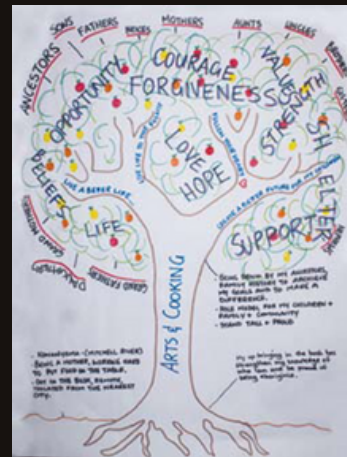 ANCESTORS
SONS
FATHERS
NIECES
MOTHERS
AUNTS
UNCLES
OPPORTUNITY
COURAGE
FORGIVENESS
VALUES
STRENGTH
SHELTER
BELIEFS
LOVE
HOPE
LIVE LIFE TO THE FULLEST
FOLLOW YOUR HEART
LIVE A BETTER LIFE...
CREATE A BETTER FUTURE FOR MY CHILDREN
LIFE
SUPPORT
GRAND MOTHERS
DAUGHTERS
GRAND FATHERS
ARTS & COOKING
- BEING DRIVEN BY MY ANCESTORS,
FAMILY HISTORY TO ACHIEVE
MY GOALS AND TO MAKE A
DIFFERENCE.
- ROLE MODEL FOR MY CHILDREN +
FAMILY + COMMUNITY
- STAND TALL + PROUD
- KOWANYAMA - (MITCHELL RIVER)
- BEING A MOTHER, WORKING HARD
TO PUT FOOD ON THE TABLE.
- OUT IN THE BUSH, REMOTE,
ISOLATED FROM THE NEAREST
CITY.
My up bringing in the bush has
strengthen my knowledge of
who I am, and be proud of
being Aboriginal.